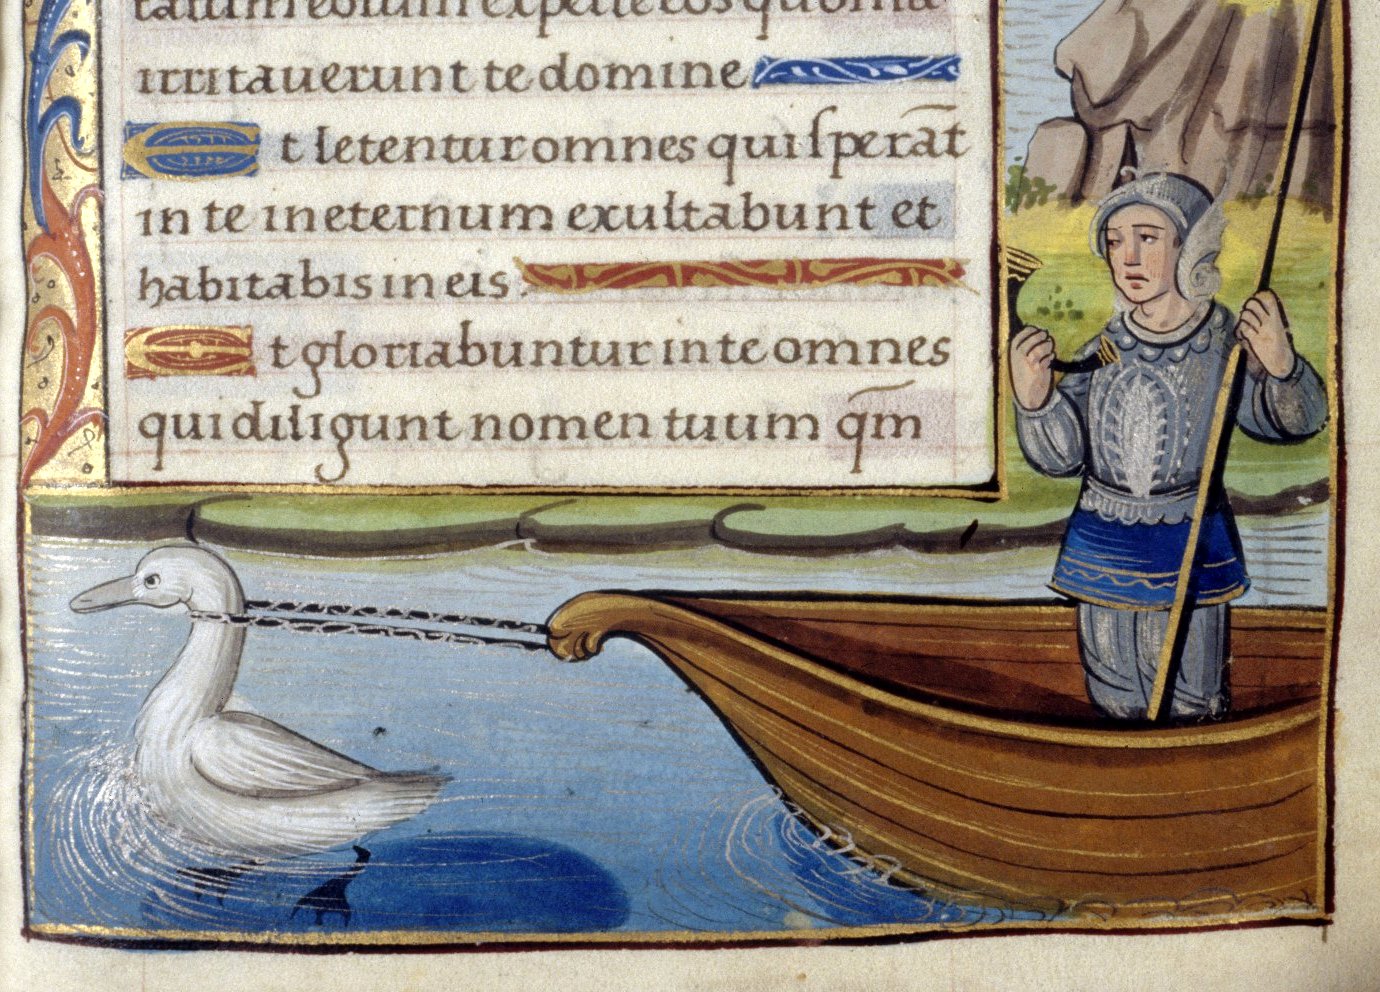 eorum expelle eos quonia
irritauerunt te domine
Et letentur omnes qui sperāt
in te in eternum exultabunt et
habitabis in eis.
Et gloriabuntur in te omnes
qui diligunt nomen tuum qm̄